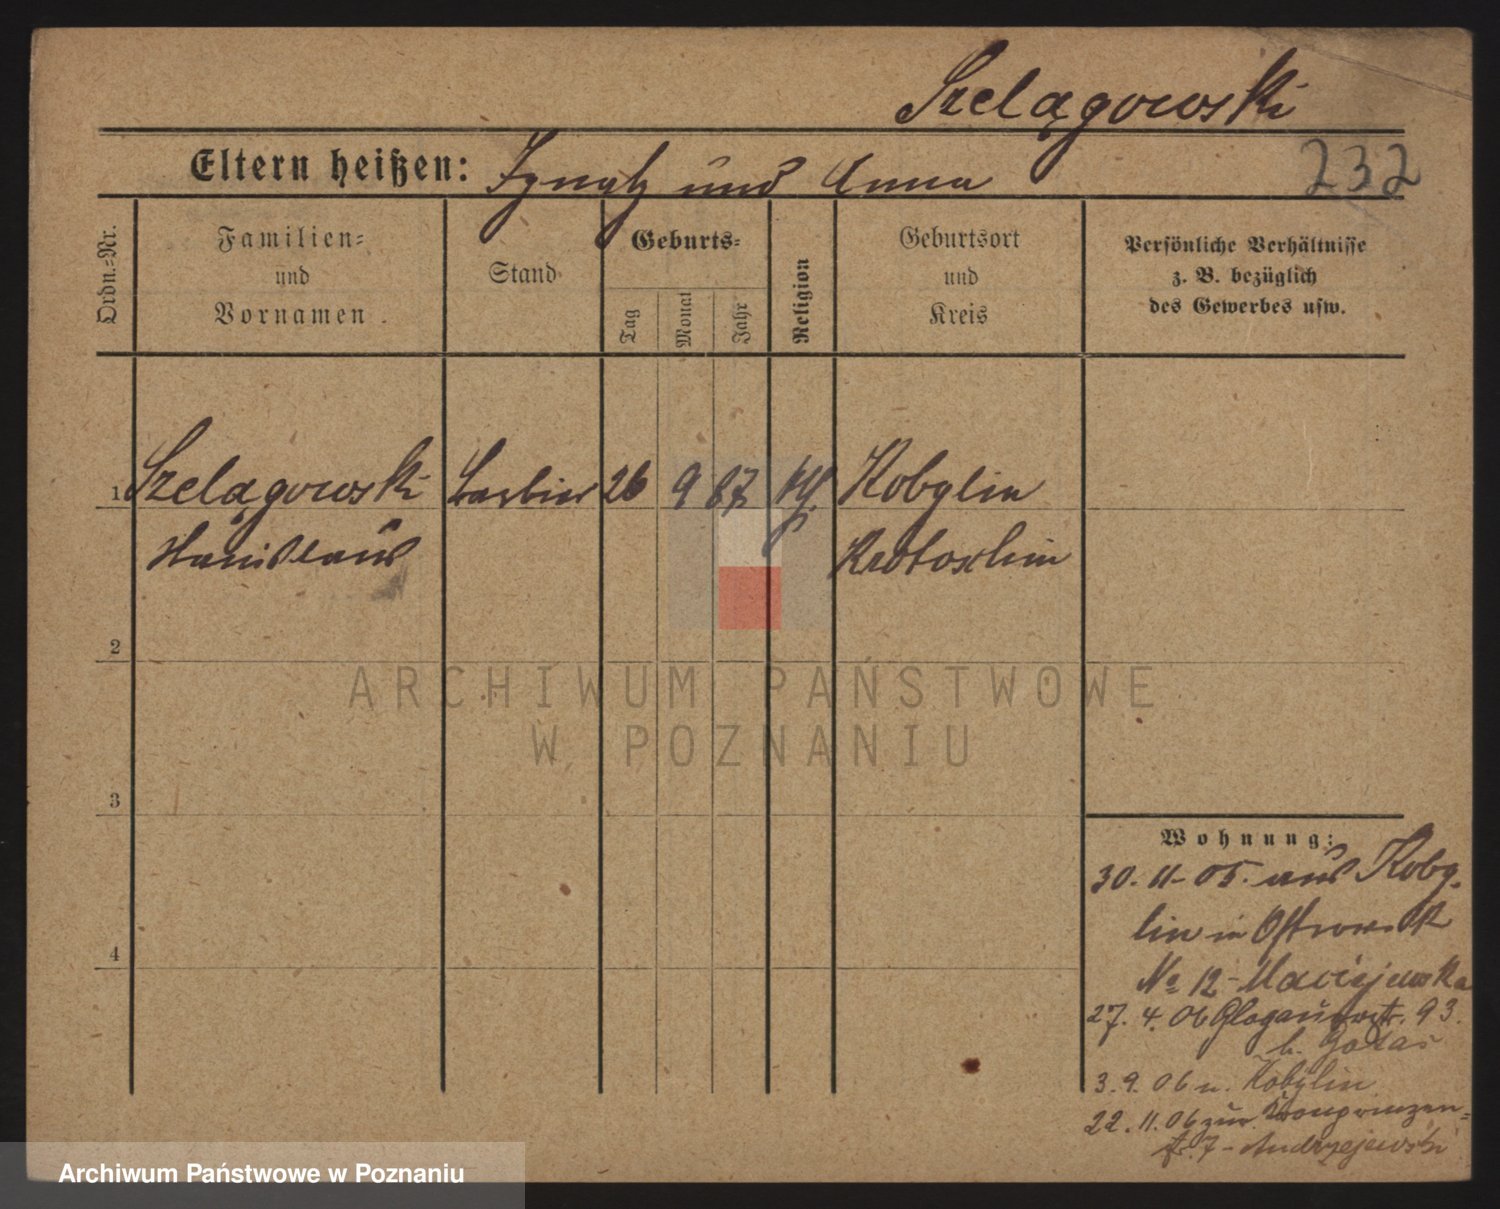 Szelągowski
Eltern heißen: Ignatz und Anna
232
Ordn.-Nr.
Familien-
und
Vornamen.
Stand
Geburts-
Tag
Monat
Jahr
Religion
Geburtsort
und
Kreis
Persönliche Verhältnisse
z. B. bezüglich
des Gewerbes usw.
1 Szelągowski Barbier 26 9 87 kth. Kobylin
Stanislaus Krotoschin
2
3
4
Wohnung:
30. 11. 05. aus Koby-
lin in Ostrowek
No 12 - Maciejewska
27. 4. 06 Glogauerstr. 93.
b.
3. 9. 06 n. Kobylin
22. 11. 06 zur. Kronprinzen-
str. 7 - Andrzejewski
ARCHIWUM PAŃSTWOWE
W POZNANIU
Archiwum Państwowe w Poznaniu